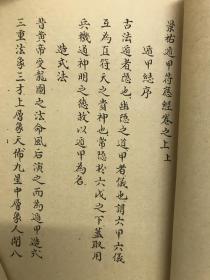 景祐遁甲符應經卷之上上
遁甲總序
古法遁者隱也幽隱之道甲者儀也謂六甲六儀
互為直符天之貴神也常隱於六戊之下蓋取用
兵機通神明之德故以遁甲為名
造式法
昔黃帝受龍圖之法命風后演之而為遁甲造式
三重法象三才上層象天佈九星中層象人開八